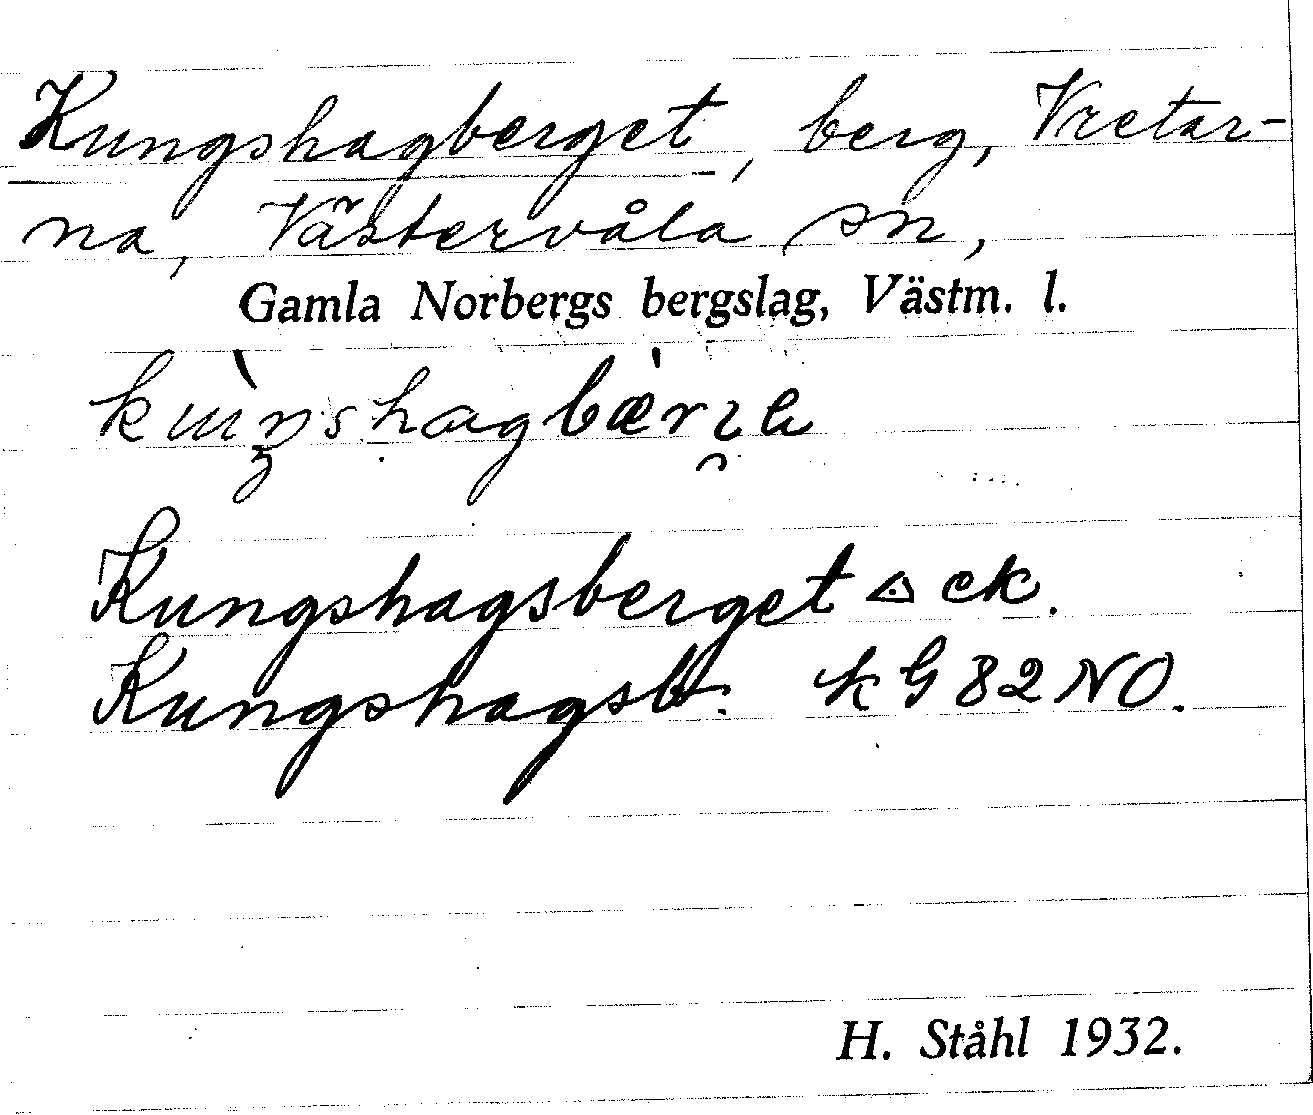 Kungshagberget, berg, Vretar-
na, Västervåla sn,
Gamla Norbergs bergslag, Västm. l.
Kungshagsberget ◬ ek.
Kungshagsb. k G 82 NO.
H. Ståhl 1932.